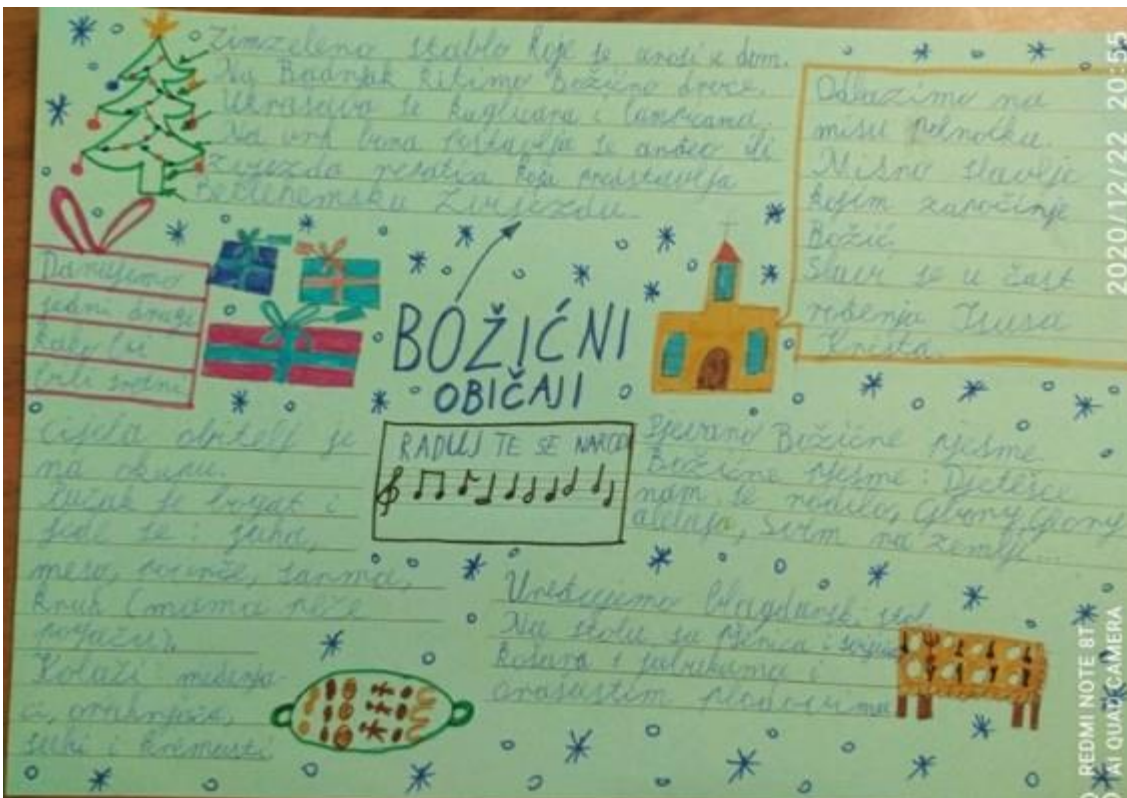 Zimzeleno stablo koje se unosi u dom.
Na Badnjak kitimo Božićno drvce.
Ukrašava se kuglicama i lampicama.
Na vrh bora postavlja se anđeo ili
zvijezda repatica koja predstavlja
Betlehemsku Zvijezdu.
Odlazimo na
misu polnoćku.
Misno slavlje
kojim započinje
Božić.
Slavi se u čast
rođenja Isusa
Krista.
Darujemo
jedni druge
kako bi
bili sretni
BOŽIĆNI
OBIČAJI
RADUJ TE SE NARODI
Cijela obitelj je
na okupu.
Ručak je bogat i
jede se: juha,
meso, sarma,
kruh (mama peče
pogaču),
Kolači medenja-
ci, orahnjača,
suhi i kremasti
Pjevamo Božićne pjesme
Božićne pjesme: Djetešce
nam se rodilo, Glory, Glory
aleluja, Svim na zemlji...
Uređujemo blagdanski stol.
Na stolu su pšenica i svijeće
košara s jabukama i
orašastim plodovima
2020/12/22 20:55
REDMI NOTE 8T
AI QUAD CAMERA